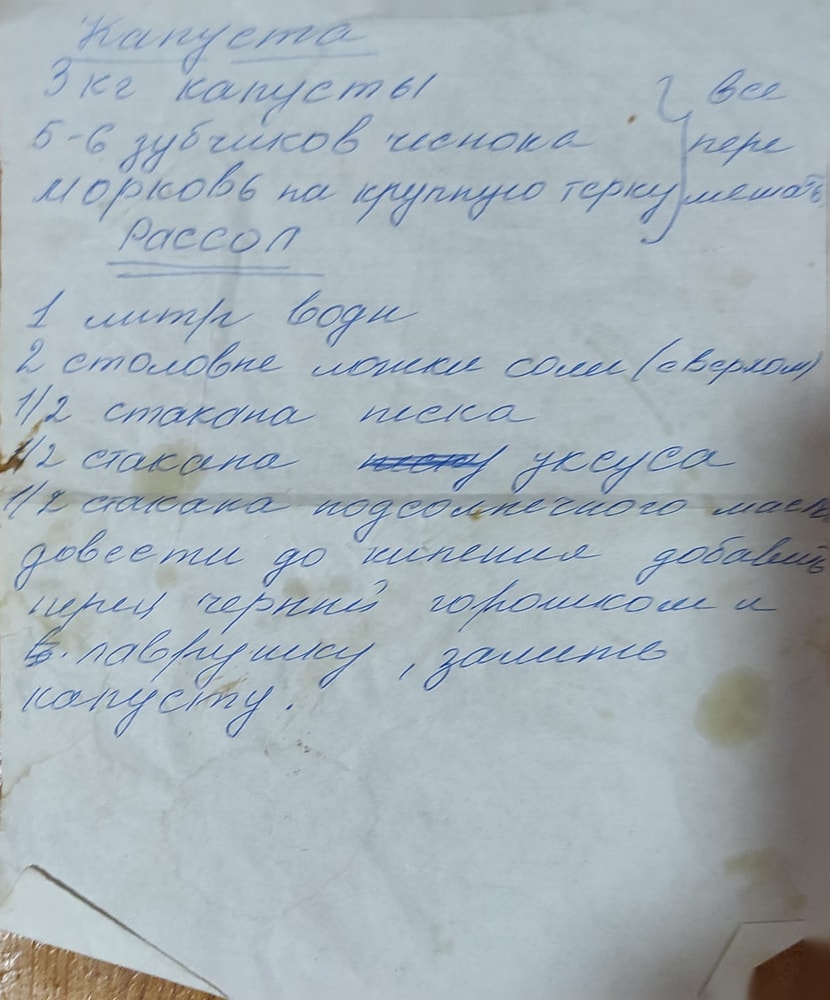 Капуста
3 кг капусты } все
5-6 зубчиков чеснока пере
морковь на крупную терку мешать
Рассол
1 литр воды
2 столовые ложки соли (с верхом)
1/2 стакана песка
1/2 стакана уксуса
1/2 стакана подсолнечного масл
довести до кипения добавить
перец черный горошком и
лаврушку, залить
капусту.